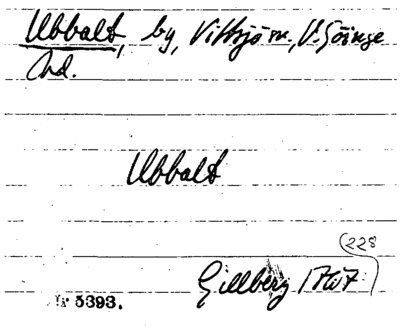 Ubbalt, by, Vittsjö sn., V. Göinge
hd.
Ubbalt
228
Gillberg 1767
Nr 5393.